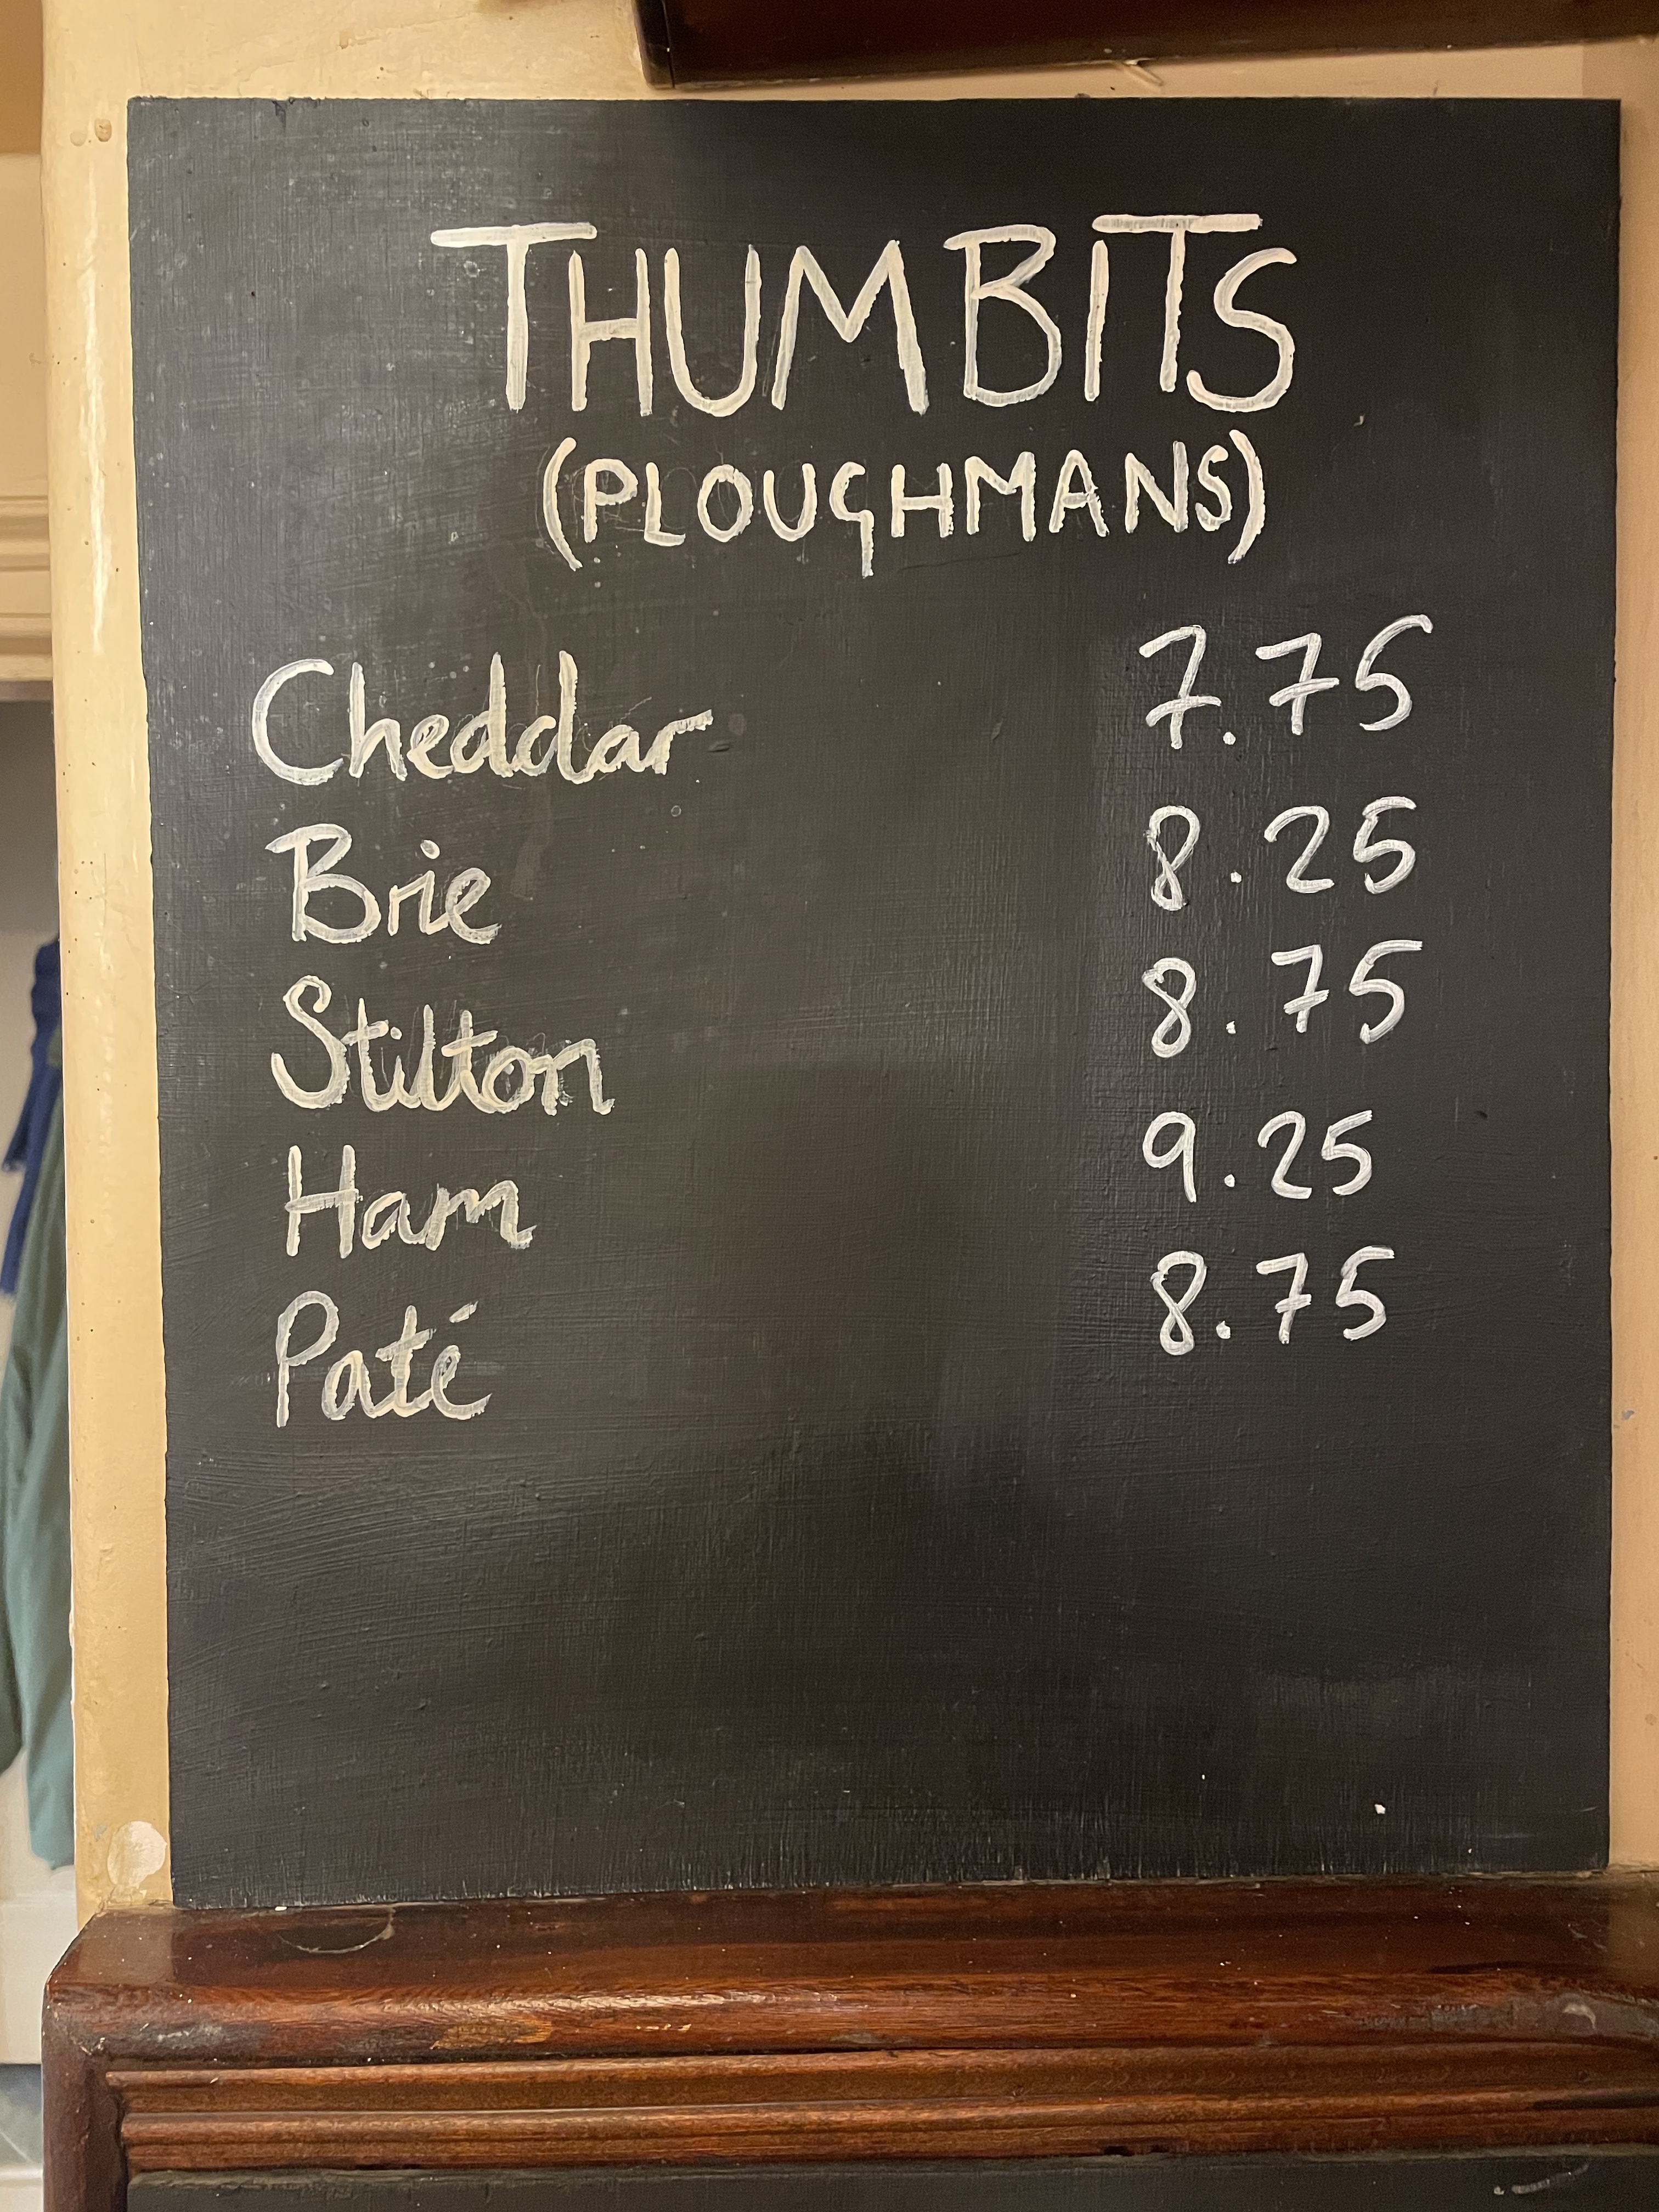 THUMBITS
(PLOUGHMANS)
Cheddar 7.75
Brie 8.25
Stilton 8.75
Ham 9.25
Paté 8.75